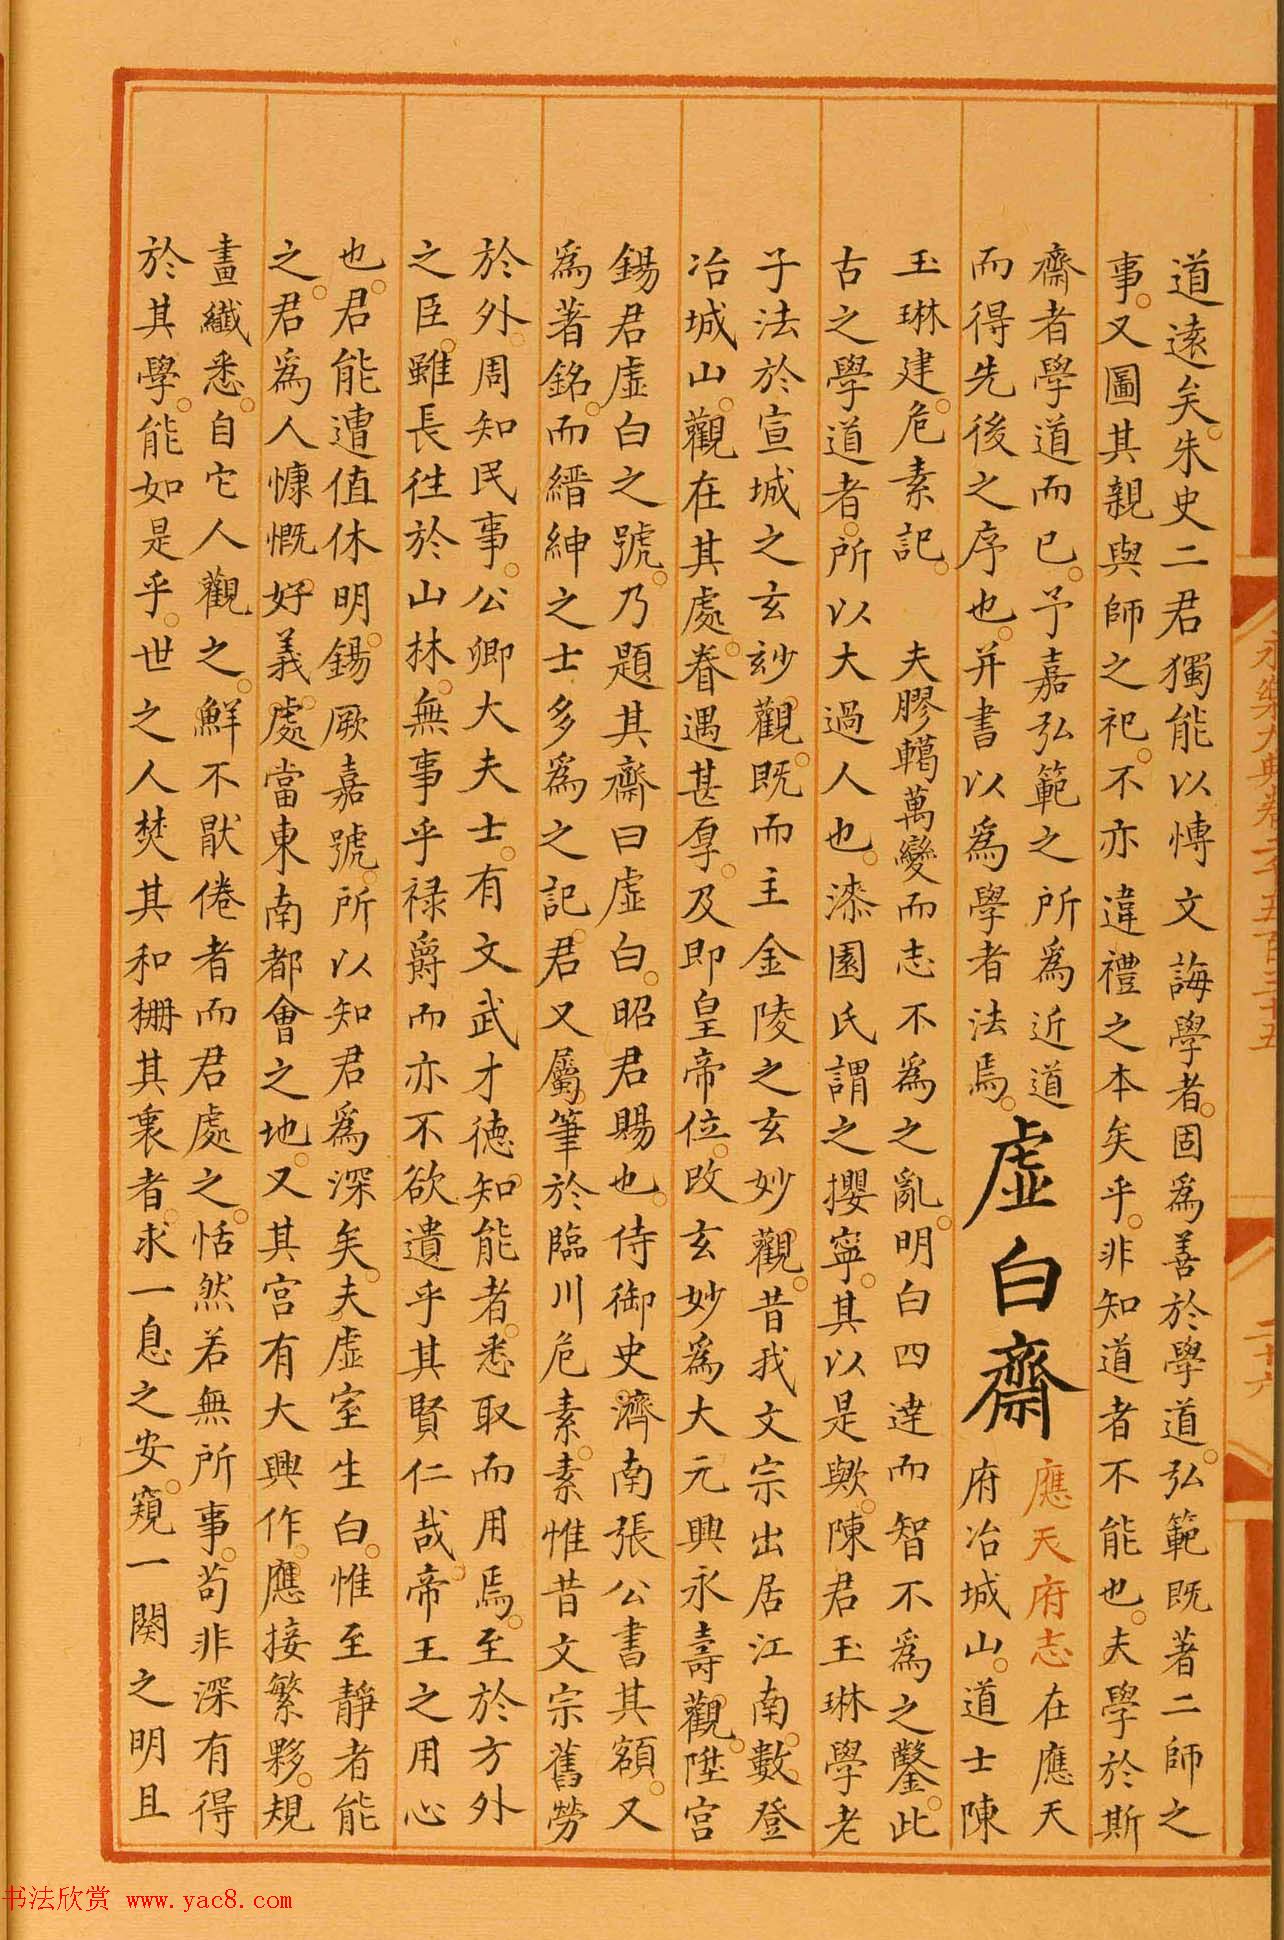 道遠矣朱史二君獨能以博文誨學者固爲善於學道弘範既著二師之
事又圖其親與師之祀不亦違禮之本矣乎非知道者不能也夫學於斯
齋者學道而已予嘉弘範之所爲近道
而得先後之序也并書以爲學者法焉
虛白齋
應天府志在應天
府冶城山道士陳
玉琳建危素記 夫膠轕萬變而志不爲之亂明白四達而智不爲之鑿此
古之學道者所以大過人也漆園氏謂之攖寧其以是歟陳君玉琳學老
子法於宣城之玄妙觀既而主金陵之玄妙觀昔我文宗出居江南數登
冶城山觀在其處眷遇甚厚及即皇帝位改玄妙爲大元興永壽觀陞宮
錫君虛白之號乃題其齋曰虛白昭君賜也侍御史濟南張公書其額又
爲著銘而縉紳之士多爲之記君又屬筆於臨川危素素惟昔文宗舊勞
於外周知民事公卿大夫士有文武才德知能者悉取而用焉至於方外
之臣雖長往於山林無事乎祿爵而亦不欲遺乎其賢仁哉帝王之用心
也君能遭值休明錫厥嘉號所以知君爲深矣夫虛室生白惟至靜者能
之君爲人慷慨好義處當東南都會之地又其宮有大興作應接繁夥規
畫纖悉自它人觀之鮮不猒倦者而君處之恬然若無所事苟非深有得
於其學能如是乎世之人焚其和柵其裏者求一息之安窺一闋之明且
永樂大典卷二千五百三十五
二十六
书法欣赏 www.yac8.com